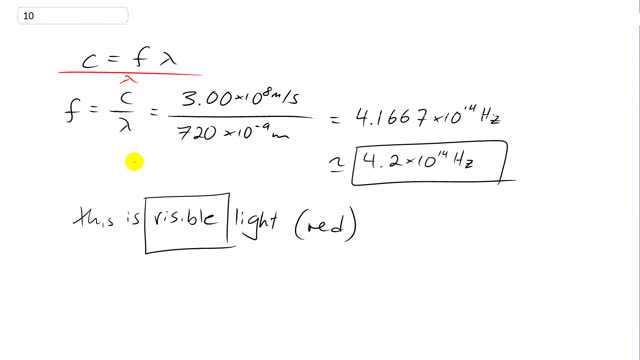 10
c = f λ
λ
f = c/λ = 3.00×10⁸m/s / 720×10⁻⁹m = 4.1667×10¹⁴ Hz
≃ 4.2×10¹⁴ Hz
this is visible light (red)